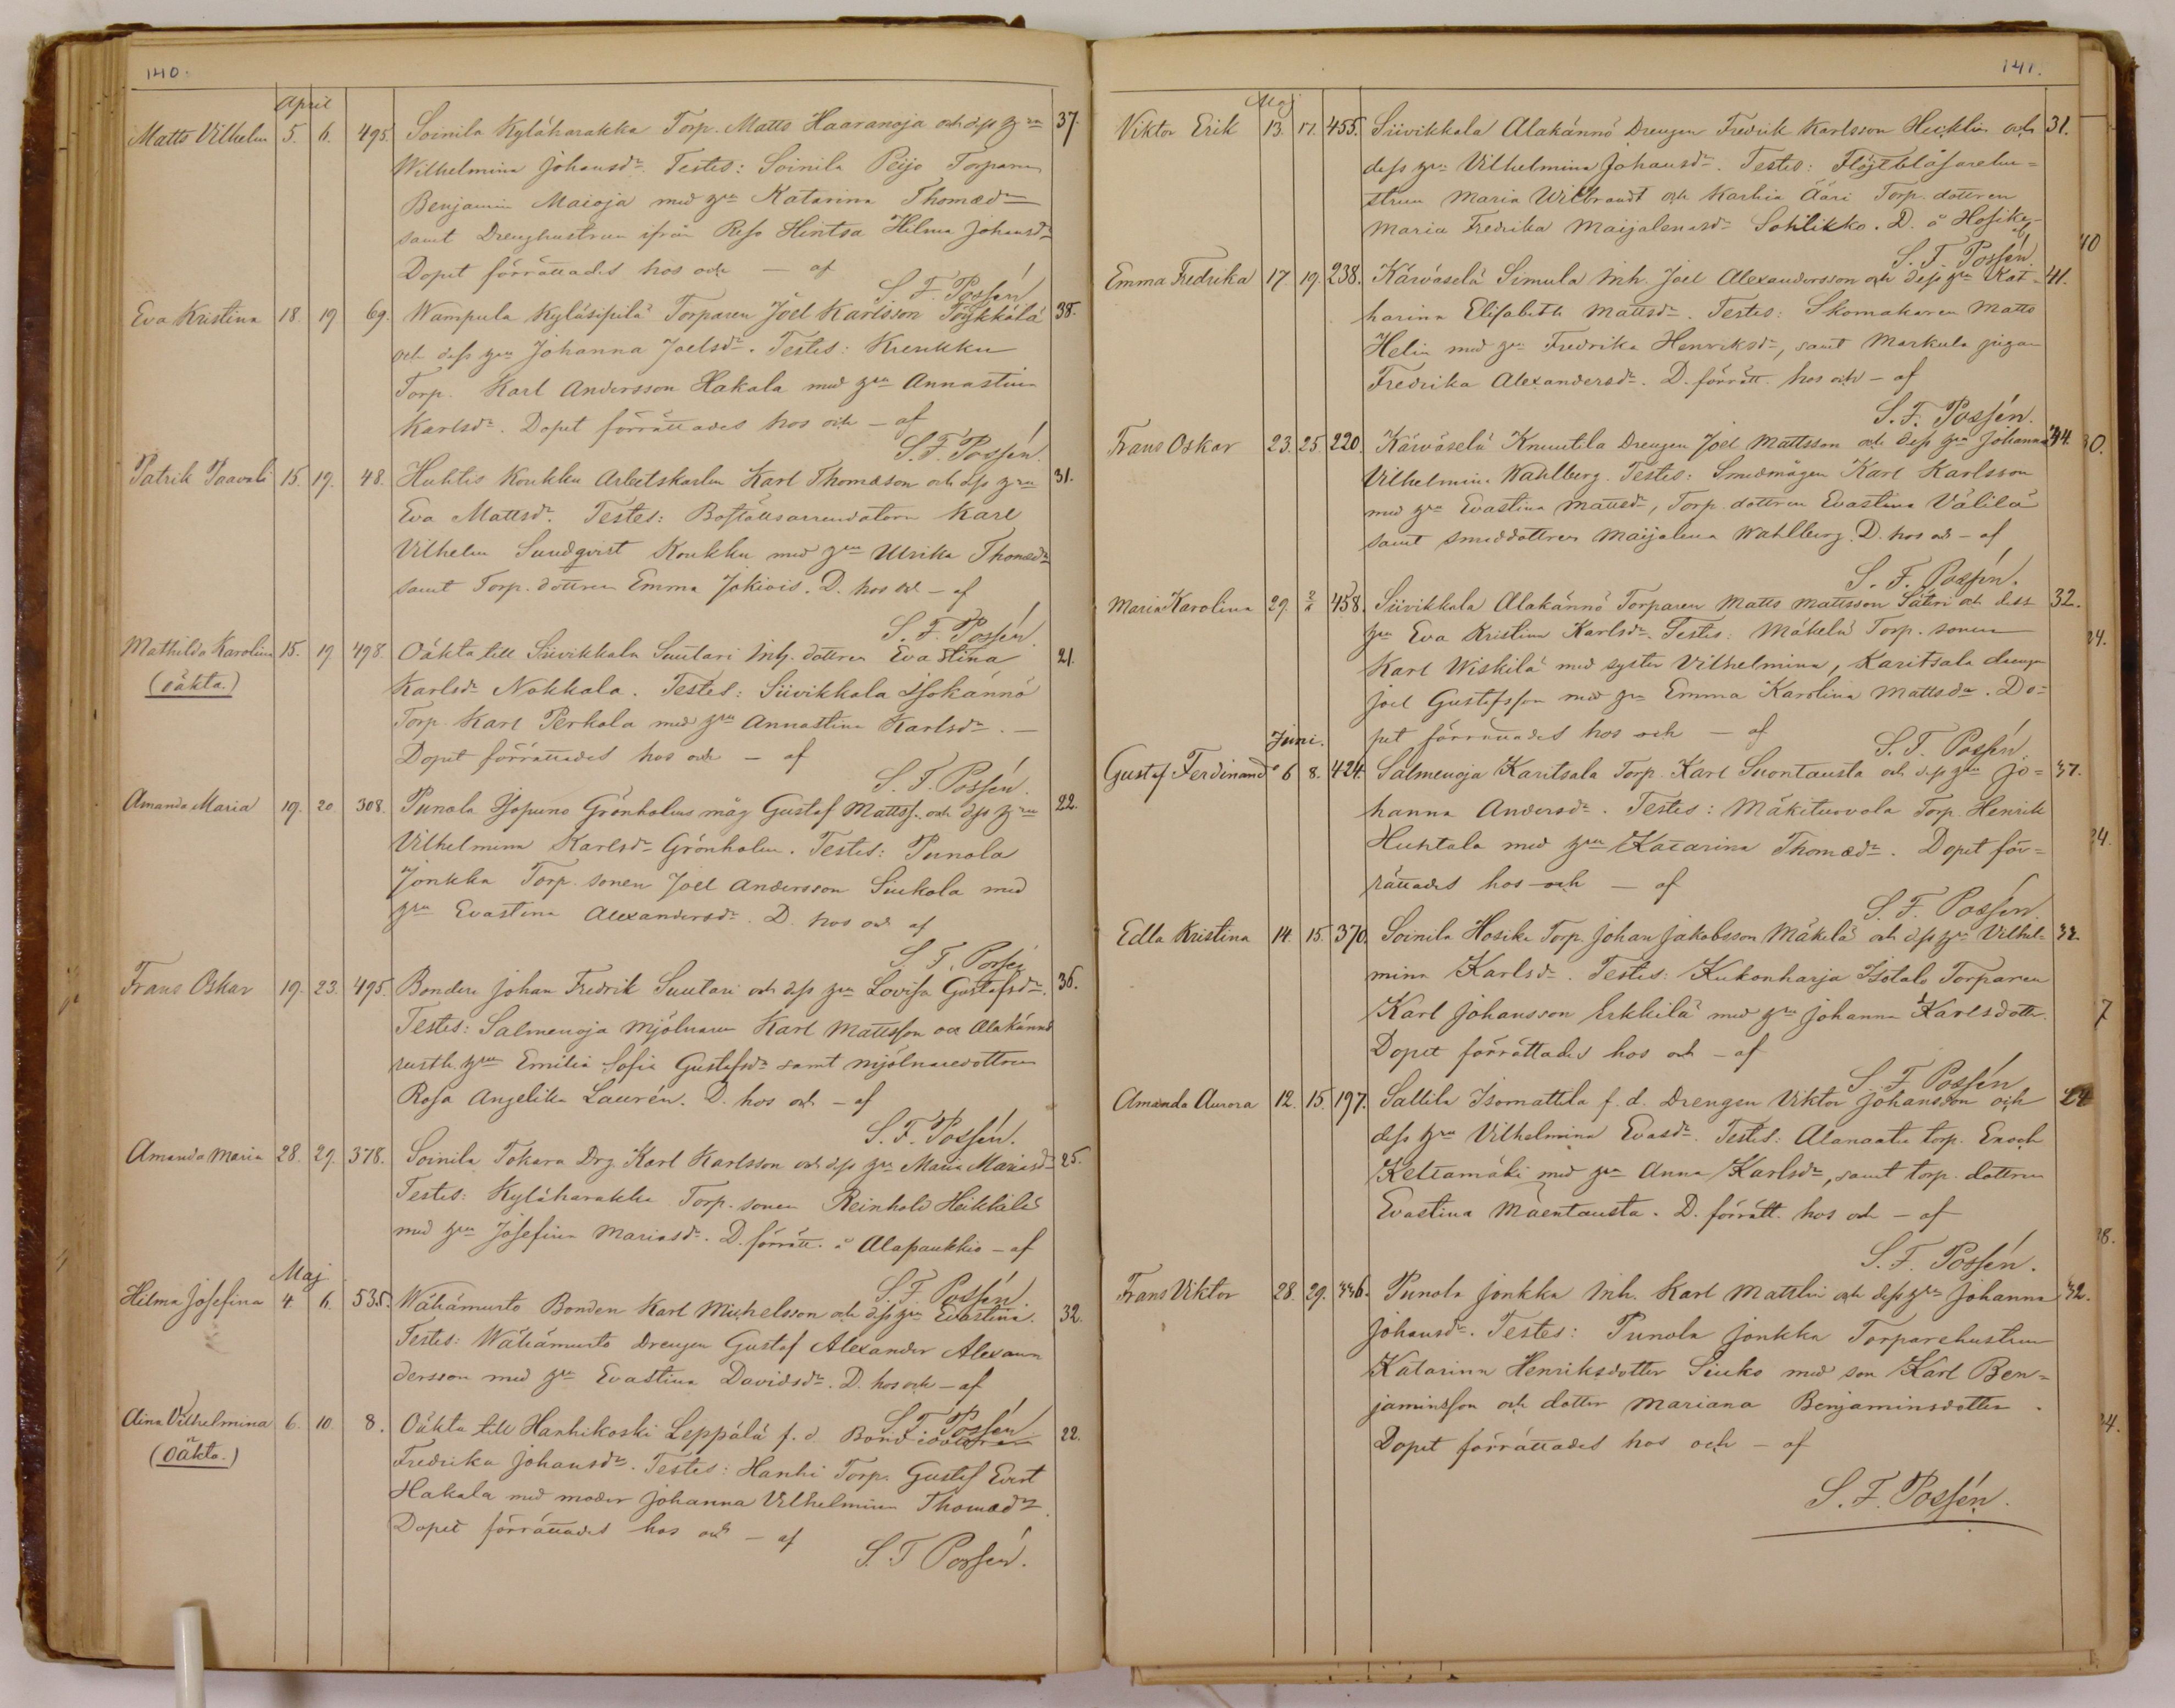 140.
April
Matts Vilhelm 5. 6. 495. Soinila Kyläharakka Torp. Matts Haaranoja och dess hru 37.
Wilhelmina Johansdr. Testes: Soinila Peijo Torparen
Benjamin Maioja med hru Katarina Thomædr
samt Drenghustrun ifrån Reso Hintsa Hilma Johansdr
Dopet förrättades hos och — af
S. F. Possén
Eva Kristina 18. 19 69. Wampula Kyläsipilä Torparen Joel Karlsson Töykkälä 38.
och dess hru Johanna Joelsdr. Testes: Krenkku
Torp. Karl Andersson Hakala med hru Annastina
Karlsdr. Dopet förrättades hos och — af
S. F. Possén.
Patrik Paavali 15. 19. 48. Huhtis Koukku Arbetskarlen Karl Thomæson och dess hru 31.
Eva Mattsdr. Testes: Boställsarrendatorn Karl
Vilhelm Sundqvist Koukku med hru Ulrika Thomædr
samt Torp. dottren Emma Jokivis. D. hos och — af
S. F. Possén
Mathilda Karolina 15. 19 498. Oäkta till Siivikkala Suutari Inh. dottren Eva Stina 21.
(oäkta.) Karlsdr Nokkala. Testes: Siivikkala Isokännö
Torp. Karl Perkola med hru Annastina Karlsdr. —
Dopet förrättades hos och — af
S. F. Possén.
Amanda Maria 19. 20. 308. Punola Isopuno Grönholms måg Gustaf Mattss. och dess hru 22.
Vilhelmina Karlsdr Grönholm. Testes: Punola
Jonkka Torp. sonen Joel Andersson Suckola med
hru Evastina Alexandersdr. D. hos och af
S. F. Possén
Frans Oskar 19. 23. 495. Bonden Johan Fredrik Suutari och dess hru Lovisa Gustafsdr. 36.
Testes: Salmenoja Mjölnaren Karl Mattsson och Alakännö
rusth. hru Emilia Sofia Gustafsdr samt mjölnaredottren
Rosa Angelika Laurén. D. hos och — af
S. F. Possén.
Amanda Maria 28. 29. 378. Soinila Tokara Drg. Karl Karlsson och dess hru Maria Mariasdr 25.
Testes: Kyläharakka Torp. sonen Reinhold Heikkilä
med hru Josefina Mariasdr. D. förrätt. å Alapaukkio — af
S. F. Possén
Maj
Hilma Josefina 4. 6. 535. Wähämurto Bonden Karl Michelsson och dess hru Evastina. 32.
Testes: Wähämurto Drengen Gustaf Alexander Alexan
dersson med hru Evastina Davidsdr. D. hos och — af
S. F. Possén
Aina Vilhelmina 6. 10. 8. Oäkta till Hanhikoski Leppälä f. d. Bondedottren 22.
(oäkta.) Fredrika Johansdr. Testes: Hanhi Torp. Gustaf Evert
Hakala med moder Johanna Vilhelmina Thomædr.
Dopet förrättades hos och — af
S. F. Possén.
141.
Maj
Viktor Erik 13. 17. 455. Siivikkala Alakännö Drengen Fredrik Karlsson Hecklin och 31.
dess hru Vilhelmina Johansdr. Testes: Flöjtblåsarehu=
strun Maria Wilbrandt och Karhia Ääri Torp. dottren
Maria Fredrika Maijalenasdr Sohlikko. D. å Hosike — af
S. F. Possén.
Emma Fredrika 17. 19. 238. Kärväselä Simula Inh. Joel Alexandersson och dess hru Kat= 41.
harina Elisabeth Mattsdr. Testes: Skomakaren Matts
Helin med hru Fredrika Henriksdr, samt Markula pigan
Fredrika Alexandersdr. D. förrätt. hos och — af
S. F. Possén.
Frans Oskar 23. 25. 220. Kärväselä Knuutila Drengen Joel Mattsson och dess hru Johanna 44.
Vilhelmina Wahlberg. Testes: Smedmågen Karl Karlsson
med hru Evastina Mattsdr, Torp. dottren Evastina Välilä
samt smeddottren Maijalena Wahlberg. D. hos och — af
S. F. Possén.
Maria Karolina 29. 458. Siivikkala Alakännö Torparen Matts Mattsson Säteri och dess 32.
hru Eva Kristina Karlsdr. Testes: Mäkelä Torp. sonen
Karl Wiskilä med syster Vilhelmina, Karitsala drengen
Joel Gustafsson med hru Emma Karolina Mattsdr. Do=
pet förrättades hos och — af
S. F. Possén
Juni.
Gustaf Ferdinand 6 8. 424. Salmenoja Karitsala Torp. Karl Suontausta och dess hru Jo= 37.
hanna Andersdr. Testes: Mäkiturvola Torp. Henrik
Huhtala med hru Katarina Thomædr. Dopet för=
rättades hos och — af
S. F. Possén.
Edla Kristina 14. 15. 370. Soinila Hosike Torp. Johan Jakobsson Mäkelä och dess hru Vilhel=
mina Karlsdr. Testes: Kukonharja Isotalo Torparen
Karl Johansson Erkkilä med hru Johanna Karlsdotter.
Dopet förrättades hos och — af
S. F. Possén
Amanda Aurora 12. 15. 197. Sallila Isomattila f. d. Drengen Viktor Johansson och 24
dess hru Vilhelmina Evasdr. Testes: Alanaatu torp. Enoch
Keltamäki med hru Anna Karlsdr, samt torp. dottren
Evastina Mäentausta. D. förrätt. hos och — af
S. F. Possén.
Frans Viktor 28. 29. 336. Punola Jonkka Inh. Karl Mattlin och dess hru Johanna 32.
Johansdr. Testes: Punola Jonkka Torparehustrun
Katarina Henriksdotter Siuko med son Karl Ben=
jaminsson och dotter Mariana Benjaminsdotter.
Dopet förrättades hos och — af
S. F. Possén.